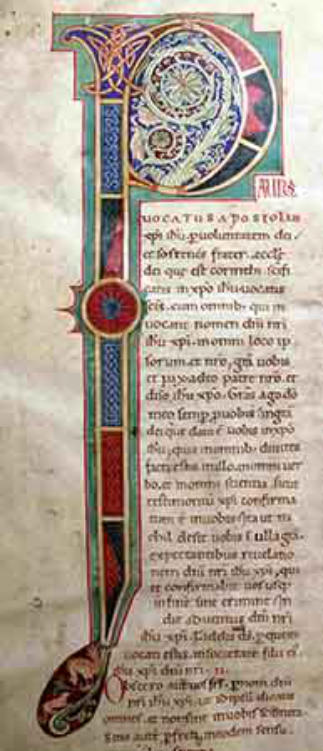 P
AULUS
UOCATUS APOSTOLUS
xpi ihu p uoluntatem dei .
et sostenes frater . eccle
dei que est corinthi scifi
catis in xpo ihu uocatis
scis . cum omnib; qui in
uocant nomen dni nri
ihu xpi . in omni loco ip
sorum et nro, gra uobis
et pax a deo patre nro . et
dno ihu xpo . Gras ago do
meo semp p uobis in gra
dei que data e uobis in xpo
ihu , quia in omnib; diuites
facti estis in illo . in omni uer
bo . et in omni scientia . sicut
testimoniu xpi confirma
tum e in uobis ita ut ni
chil desit uobis in ulla gra .
expectantibus reuelatio
nem dni nri ihu xpi , qui
et confirmabit uos usq;
in fine sine crimine in
die aduentus dni nri
ihu xpi . Fidelis ds . p quem
uocati estis . in societate filii ei
ihu xpi dni nri .
Obsecro aut uos frs . p nom dni
nri ihu xpi . ut idipsu dicatis
omnes . et non sint in uobis scismata .
Sitis aute pfecti , in eodem sensu .